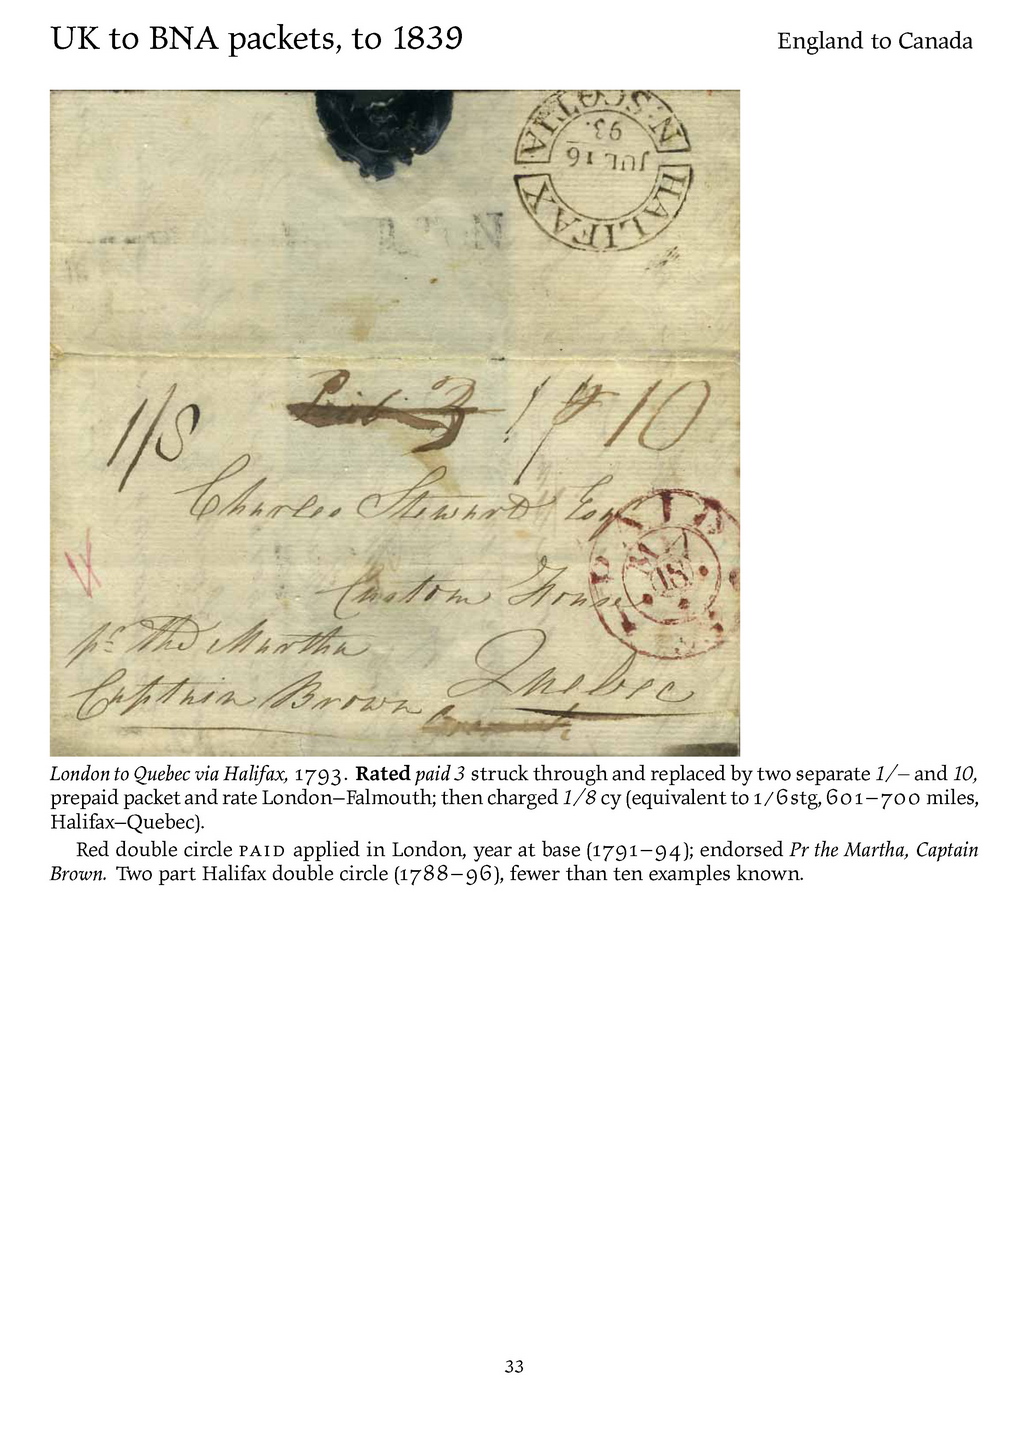 UK to BNA packets, to 1839
England to Canada
HALIFAX N·SCOTIA
JUL 16
93.
1/8 Paid 3 1 10
Charles Steward Esqr
PAID
18
Custom House
pr The Martha
Captain Brown Quebec
London to Quebec via Halifax, 1793. Rated paid 3 struck through and replaced by two separate 1/– and 10,
prepaid packet and rate London–Falmouth; then charged 1/8 cy (equivalent to 1/6 stg, 601–700 miles,
Halifax–Quebec).
Red double circle PAID applied in London, year at base (1791–94); endorsed Pr the Martha, Captain
Brown. Two part Halifax double circle (1788–96), fewer than ten examples known.
33